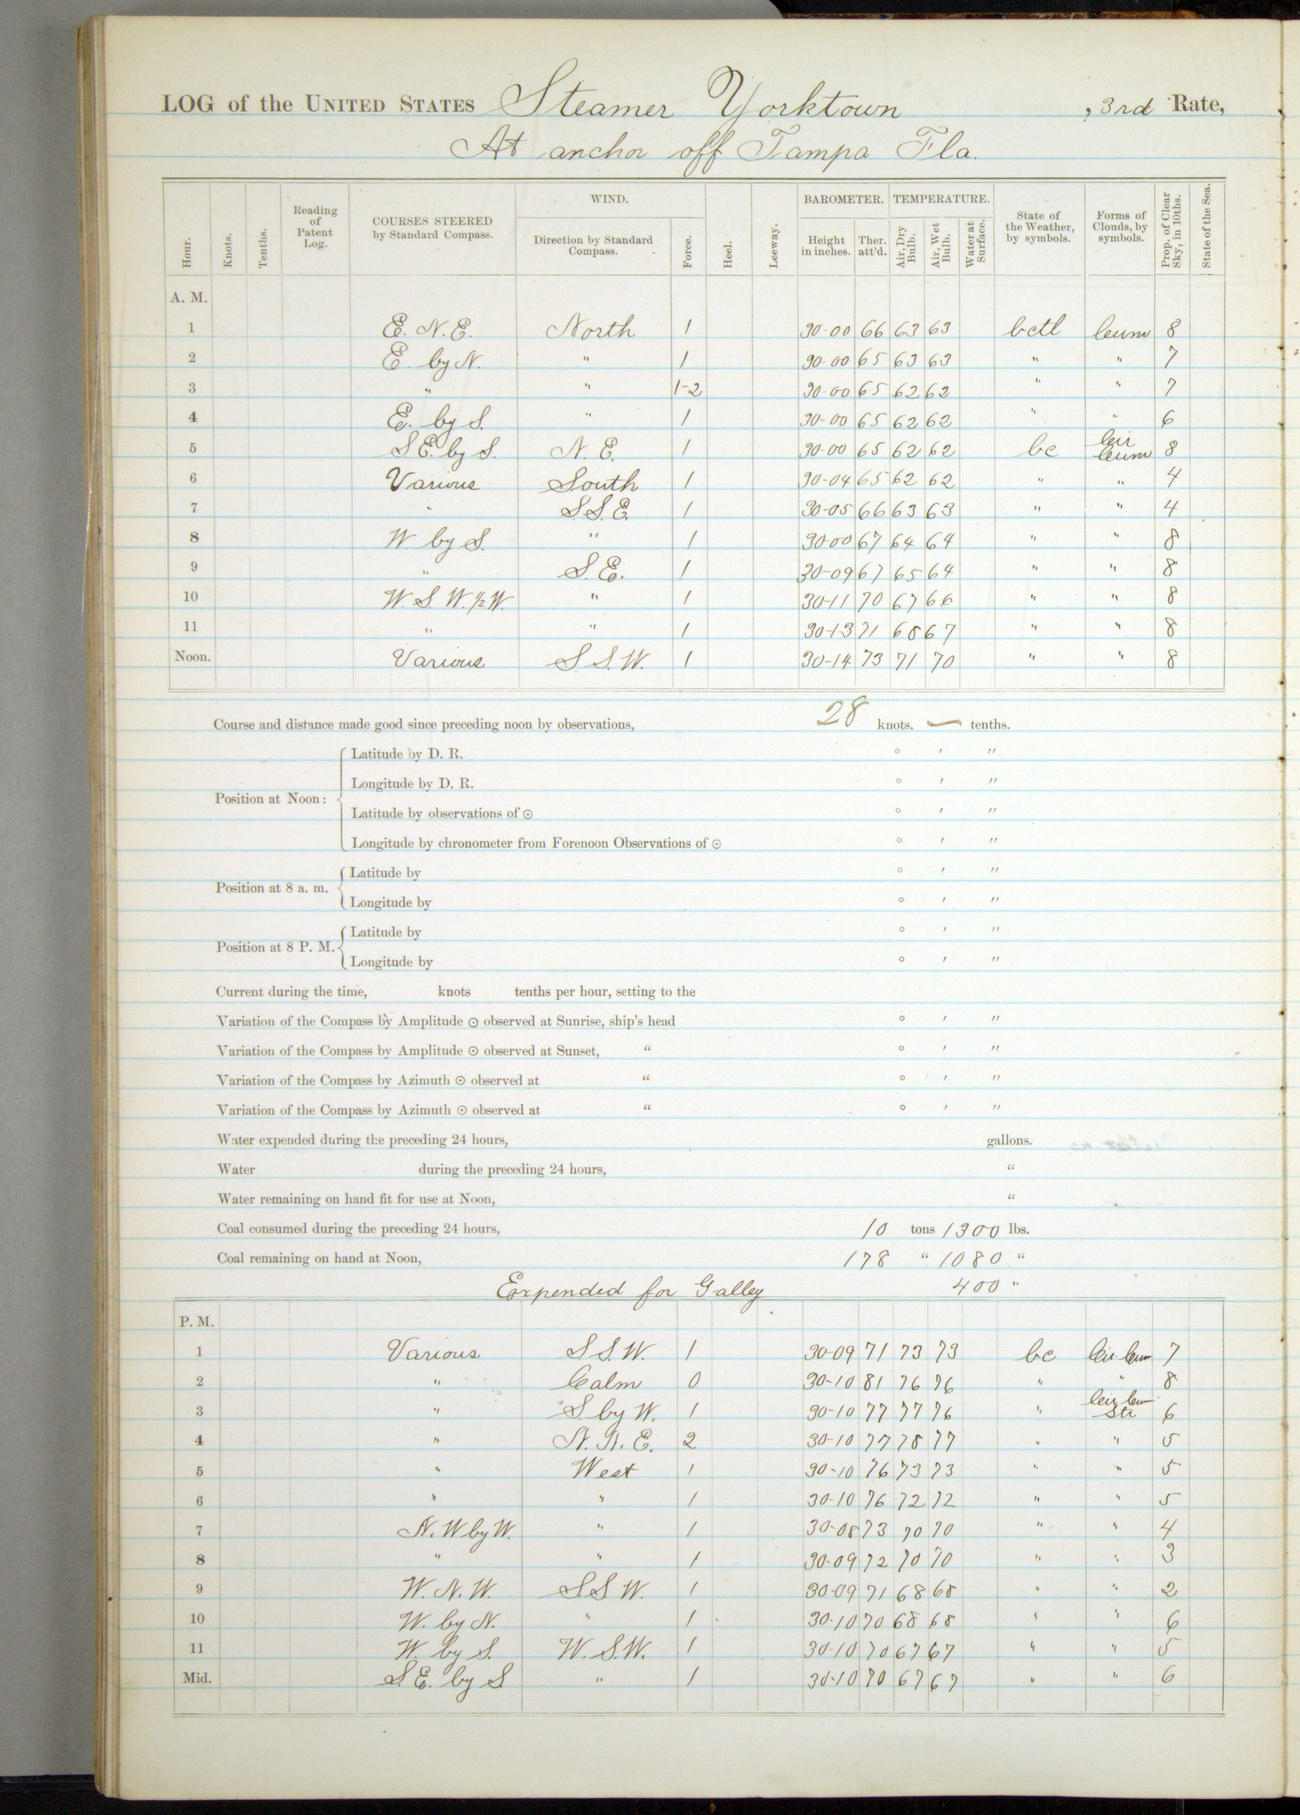 LOG of the UNITED STATES Steamer Yorktown , 3rd Rate,
At anchor off Tampa Fla.
Hour. Knots. Tenths. Reading of Patent Log. COURSES STEERED by Standard Compass. WIND. Direction by Standard Compass. Force. Heel. Leeway. BAROMETER. Height in inches. Ther. att'd. TEMPERATURE. Air, Dry Bulb. Air, Wet Bulb. Water at Surface. State of the Weather, by symbols. Forms of Clouds, by symbols. Prop. of Clear Sky, in 10ths. State of the Sea.
A. M.
1 E. N. E. North 1 30-00 66 63 63 bctl cum 8
2 E by N. " 1 30-00 65 63 63 " " 7
3 " " 1-2 30-00 65 62 62 " " 7
4 E. by S. " 1 30-00 65 62 62 " " 6
5 S E. by S. N. E. 1 30-00 65 62 62 bc cir cum 8
6 Various South 1 30-04 65 62 62 " " 4
7 " S.S.E. 1 30-05 66 63 63 " " 4
8 W. by S. " 1 30-00 67 64 64 " " 8
9 " S. E. 1 30-09 67 65 64 " " 8
10 W. S W. ½ W. " 1 30-11 70 67 66 " " 8
11 " " 1 30-13 71 68 67 " " 8
Noon. Various S S. W. 1 30-14 73 71 70 " " 8
Course and distance made good since preceding noon by observations, 28 knots. — tenths.
Position at Noon:
Latitude by D. R. ° ′ ″
Longitude by D. R. ° ′ ″
Latitude by observations of ☉ ° ′ ″
Longitude by chronometer from Forenoon Observations of ☉ ° ′ ″
Position at 8 a. m.
Latitude by ° ′ ″
Longitude by ° ′ ″
Position at 8 P. M.
Latitude by ° ′ ″
Longitude by ° ′ ″
Current during the time, knots tenths per hour, setting to the
Variation of the Compass by Amplitude ☉ observed at Sunrise, ship's head ° ′ ″
Variation of the Compass by Amplitude ☉ observed at Sunset, " ° ′ ″
Variation of the Compass by Azimuth ☉ observed at " ° ′ ″
Variation of the Compass by Azimuth ☉ observed at " ° ′ ″
Water expended during the preceding 24 hours, gallons.
Water during the preceding 24 hours, "
Water remaining on hand fit for use at Noon, "
Coal consumed during the preceding 24 hours, 10 tons 1300 lbs.
Coal remaining on hand at Noon, 178 " 1080 "
Expended for Galley 400 "
P. M.
1 Various S S. W. 1 30-09 71 73 73 bc cir cum 7
2 " Calm 0 30-10 81 76 76 " " 8
3 " S. by W. 1 30-10 77 77 76 " cir cum str 6
4 " N. N. E. 2 30-10 77 78 77 " " 5
5 " West 1 30-10 76 73 73 " " 5
6 " " 1 30-10 76 72 72 " " 5
7 N. W by W. " 1 30-08 73 70 70 " " 4
8 " " 1 30-09 72 70 70 " " 3
9 W. N. W. S.S W. 1 30-09 71 68 68 " " 2
10 W. by N. " 1 30-10 70 68 68 " " 6
11 W. by S. W. S.W. 1 30-10 70 67 67 " " 5
Mid. S.E. by S. " 1 30-10 70 67 67 " " 6